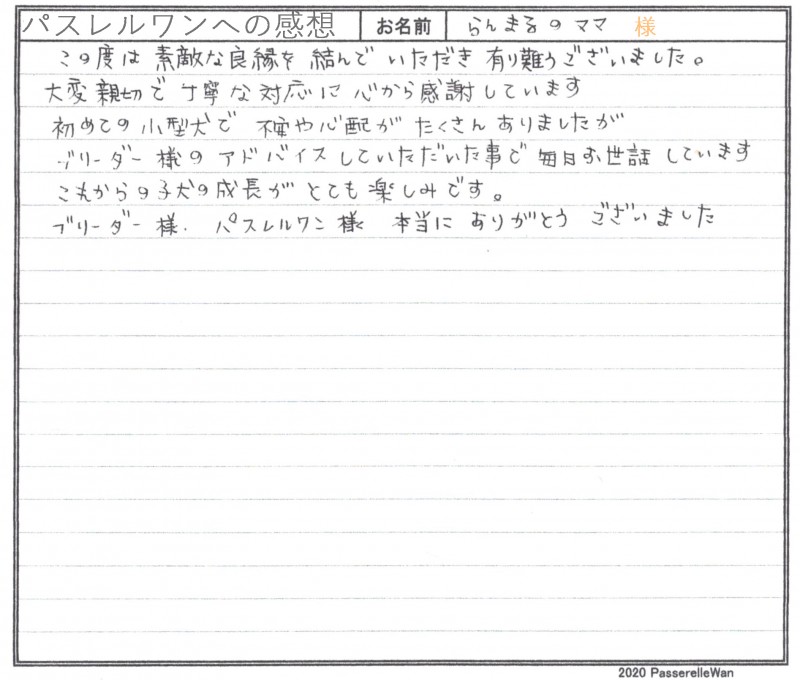 パスレルワンへの感想 お名前 らんまるのママ 様
この度は 素敵な良縁を 結んで いただき 有り難うございました。
大変親切で 丁寧な対応に 心から感謝しています
初めての 小型犬で や心配が たくさん ありましたが
ブリーダー様の アドバイス していただいた事で 毎日お世話 しています
これからの子犬の成長が とても 楽しみです。
ブリーダー様. パスレルワン様 本当に ありがとう ございました
2020 PasserelleWan